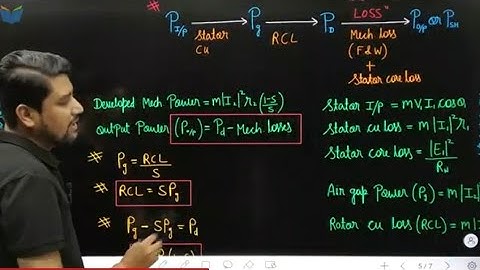 LOSS
# P_I/p → P_g → P_D → P_o/p or P_SH
Stator Cu
RCL
Mech Loss (F & W) + Stator core loss
Developed Mech Power = m|I_2|² r_2 (1-S/S)
Output Power (P_o/p) = P_d - Mech. losses
# P_g = RCL/S
# RCL = SP_g
# P_g - SP_g = P_d
Stator I/p = mV_1 I_1 cosΦ
Stator cu loss = m|I_1|² r_1
Stator core loss = |E_1|²/R_N
Air gap Power (P_g) = m|I
Rotor cu loss (RCL) = m|I
5/7